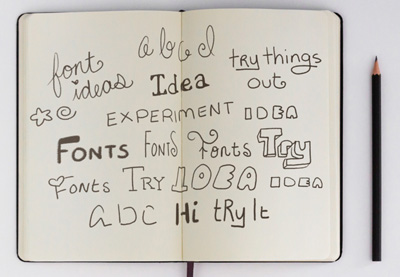 abcd
font ideas
Idea
try things out
EXPERIMENT IDEA
FONTS FONTS Fonts Try
Fonts TRY IDEA IDEA
abc Hi tRy It